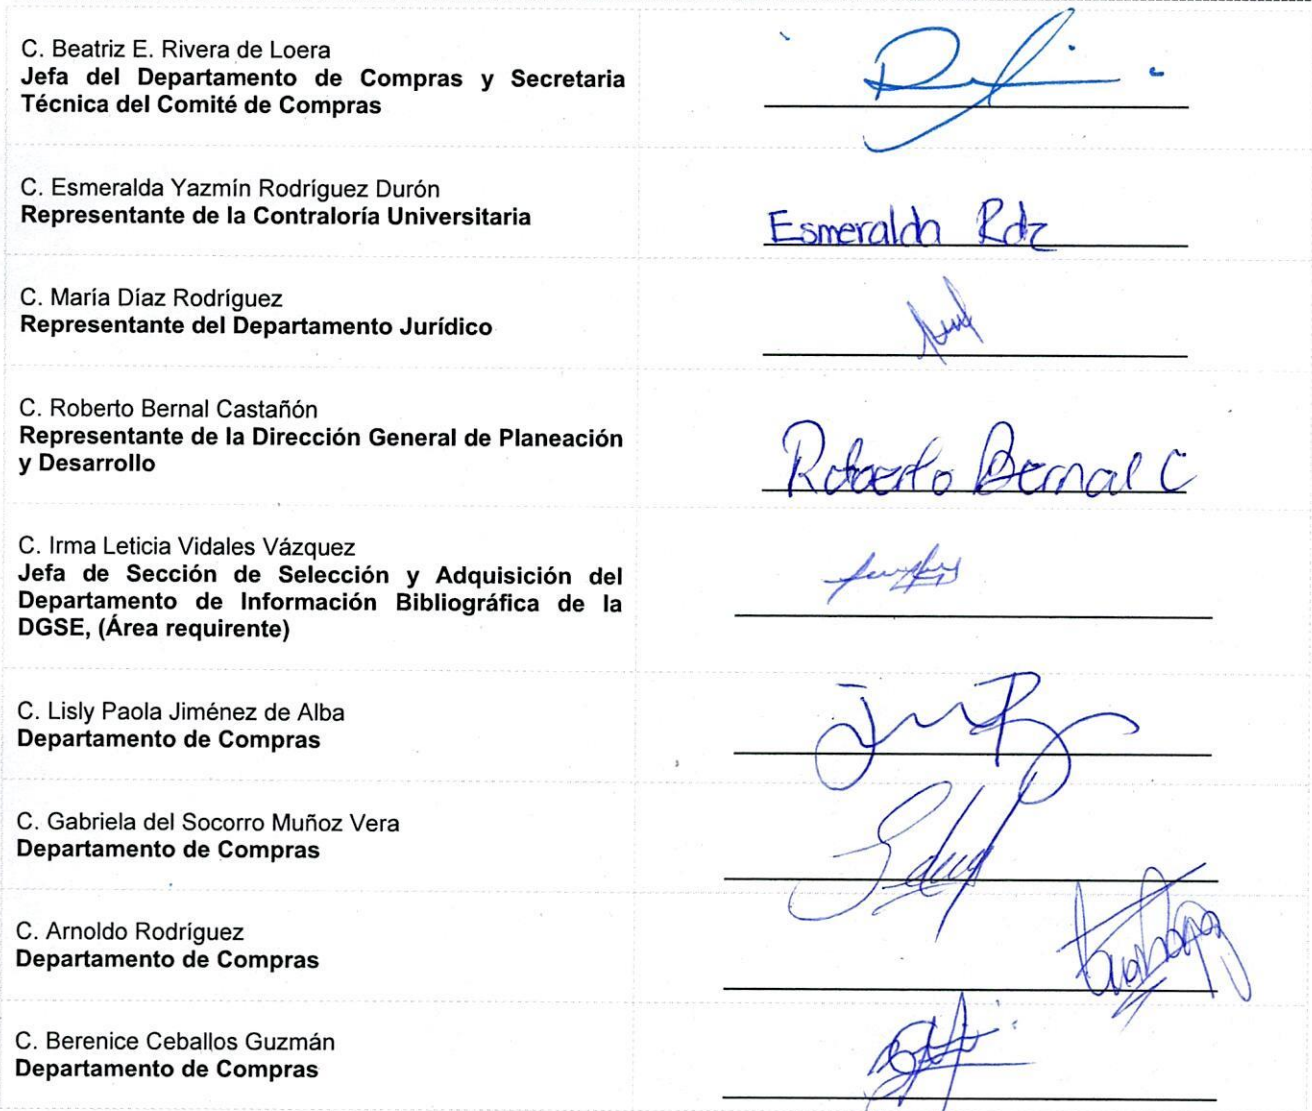 C. Beatriz E. Rivera de Loera
Jefa del Departamento de Compras y Secretaria
Técnica del Comité de Compras
C. Esmeralda Yazmín Rodríguez Durón
Representante de la Contraloría Universitaria
Esmeralda Rdz
C. María Díaz Rodríguez
Representante del Departamento Jurídico
C. Roberto Bernal Castañón
Representante de la Dirección General de Planeación
y Desarrollo
Roberto Bernal C
C. Irma Leticia Vidales Vázquez
Jefa de Sección de Selección y Adquisición del
Departamento de Información Bibliográfica de la
DGSE, (Área requirente)
C. Lisly Paola Jiménez de Alba
Departamento de Compras
C. Gabriela del Socorro Muñoz Vera
Departamento de Compras
C. Arnoldo Rodríguez
Departamento de Compras
C. Berenice Ceballos Guzmán
Departamento de Compras